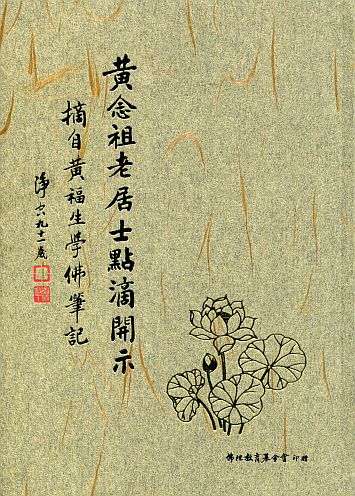 黃念祖老居士點滴開示
摘自黃福生學佛筆記
淨空九十一歲
佛陀教育基金會 印贈